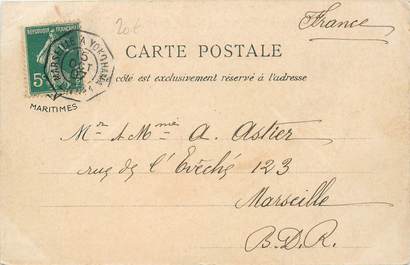 20€
France
REPUBLIQUE FRANCAISE
MARSEILLE A YOKOHAMA
5c
MARITIMES
CARTE POSTALE
côté est exclusivement réservé à l'adresse
Mr & Mme A. Astier
rue de l'Evêché 123
Marseille
B.D.R.